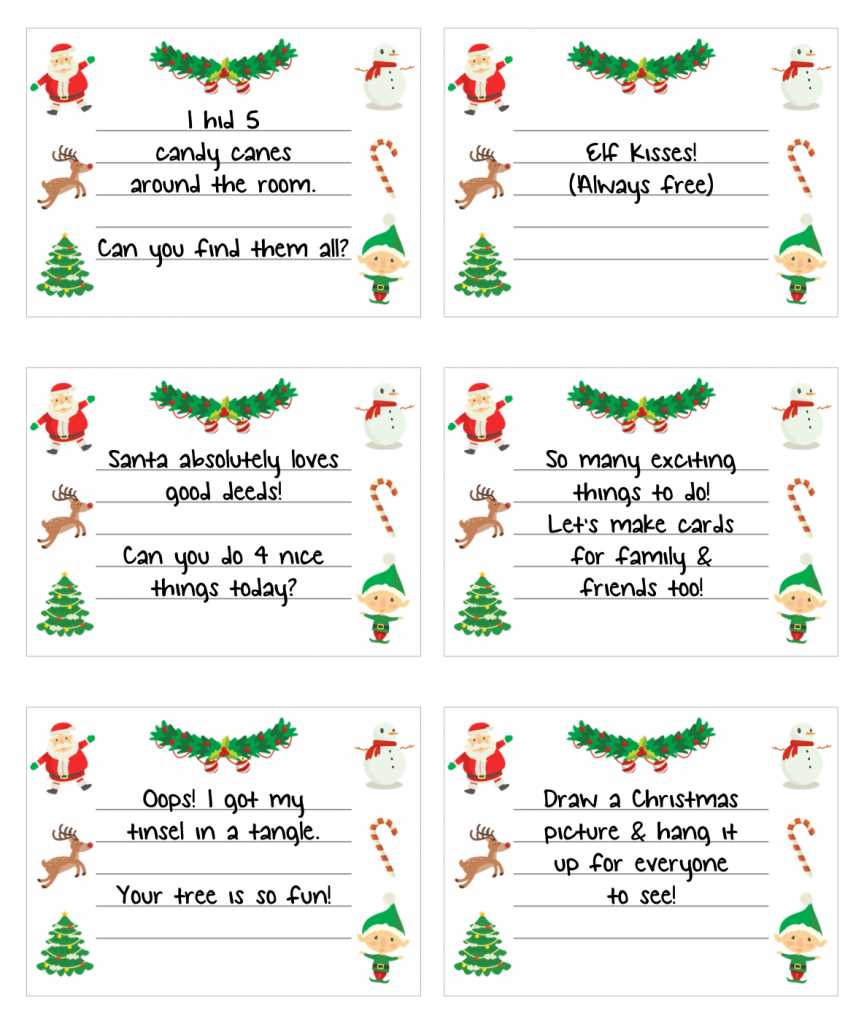 I hid 5
candy canes
around the room.
Can you find them all?
Elf Kisses!
(Always free)
Santa absolutely loves
good deeds!
Can you do 4 nice
things today?
So many exciting
things to do!
Let's make cards
for family &
friends too!
Oops! I got my
tinsel in a tangle.
Your tree is so fun!
Draw a Christmas
picture & hang it
up for everyone
to see!